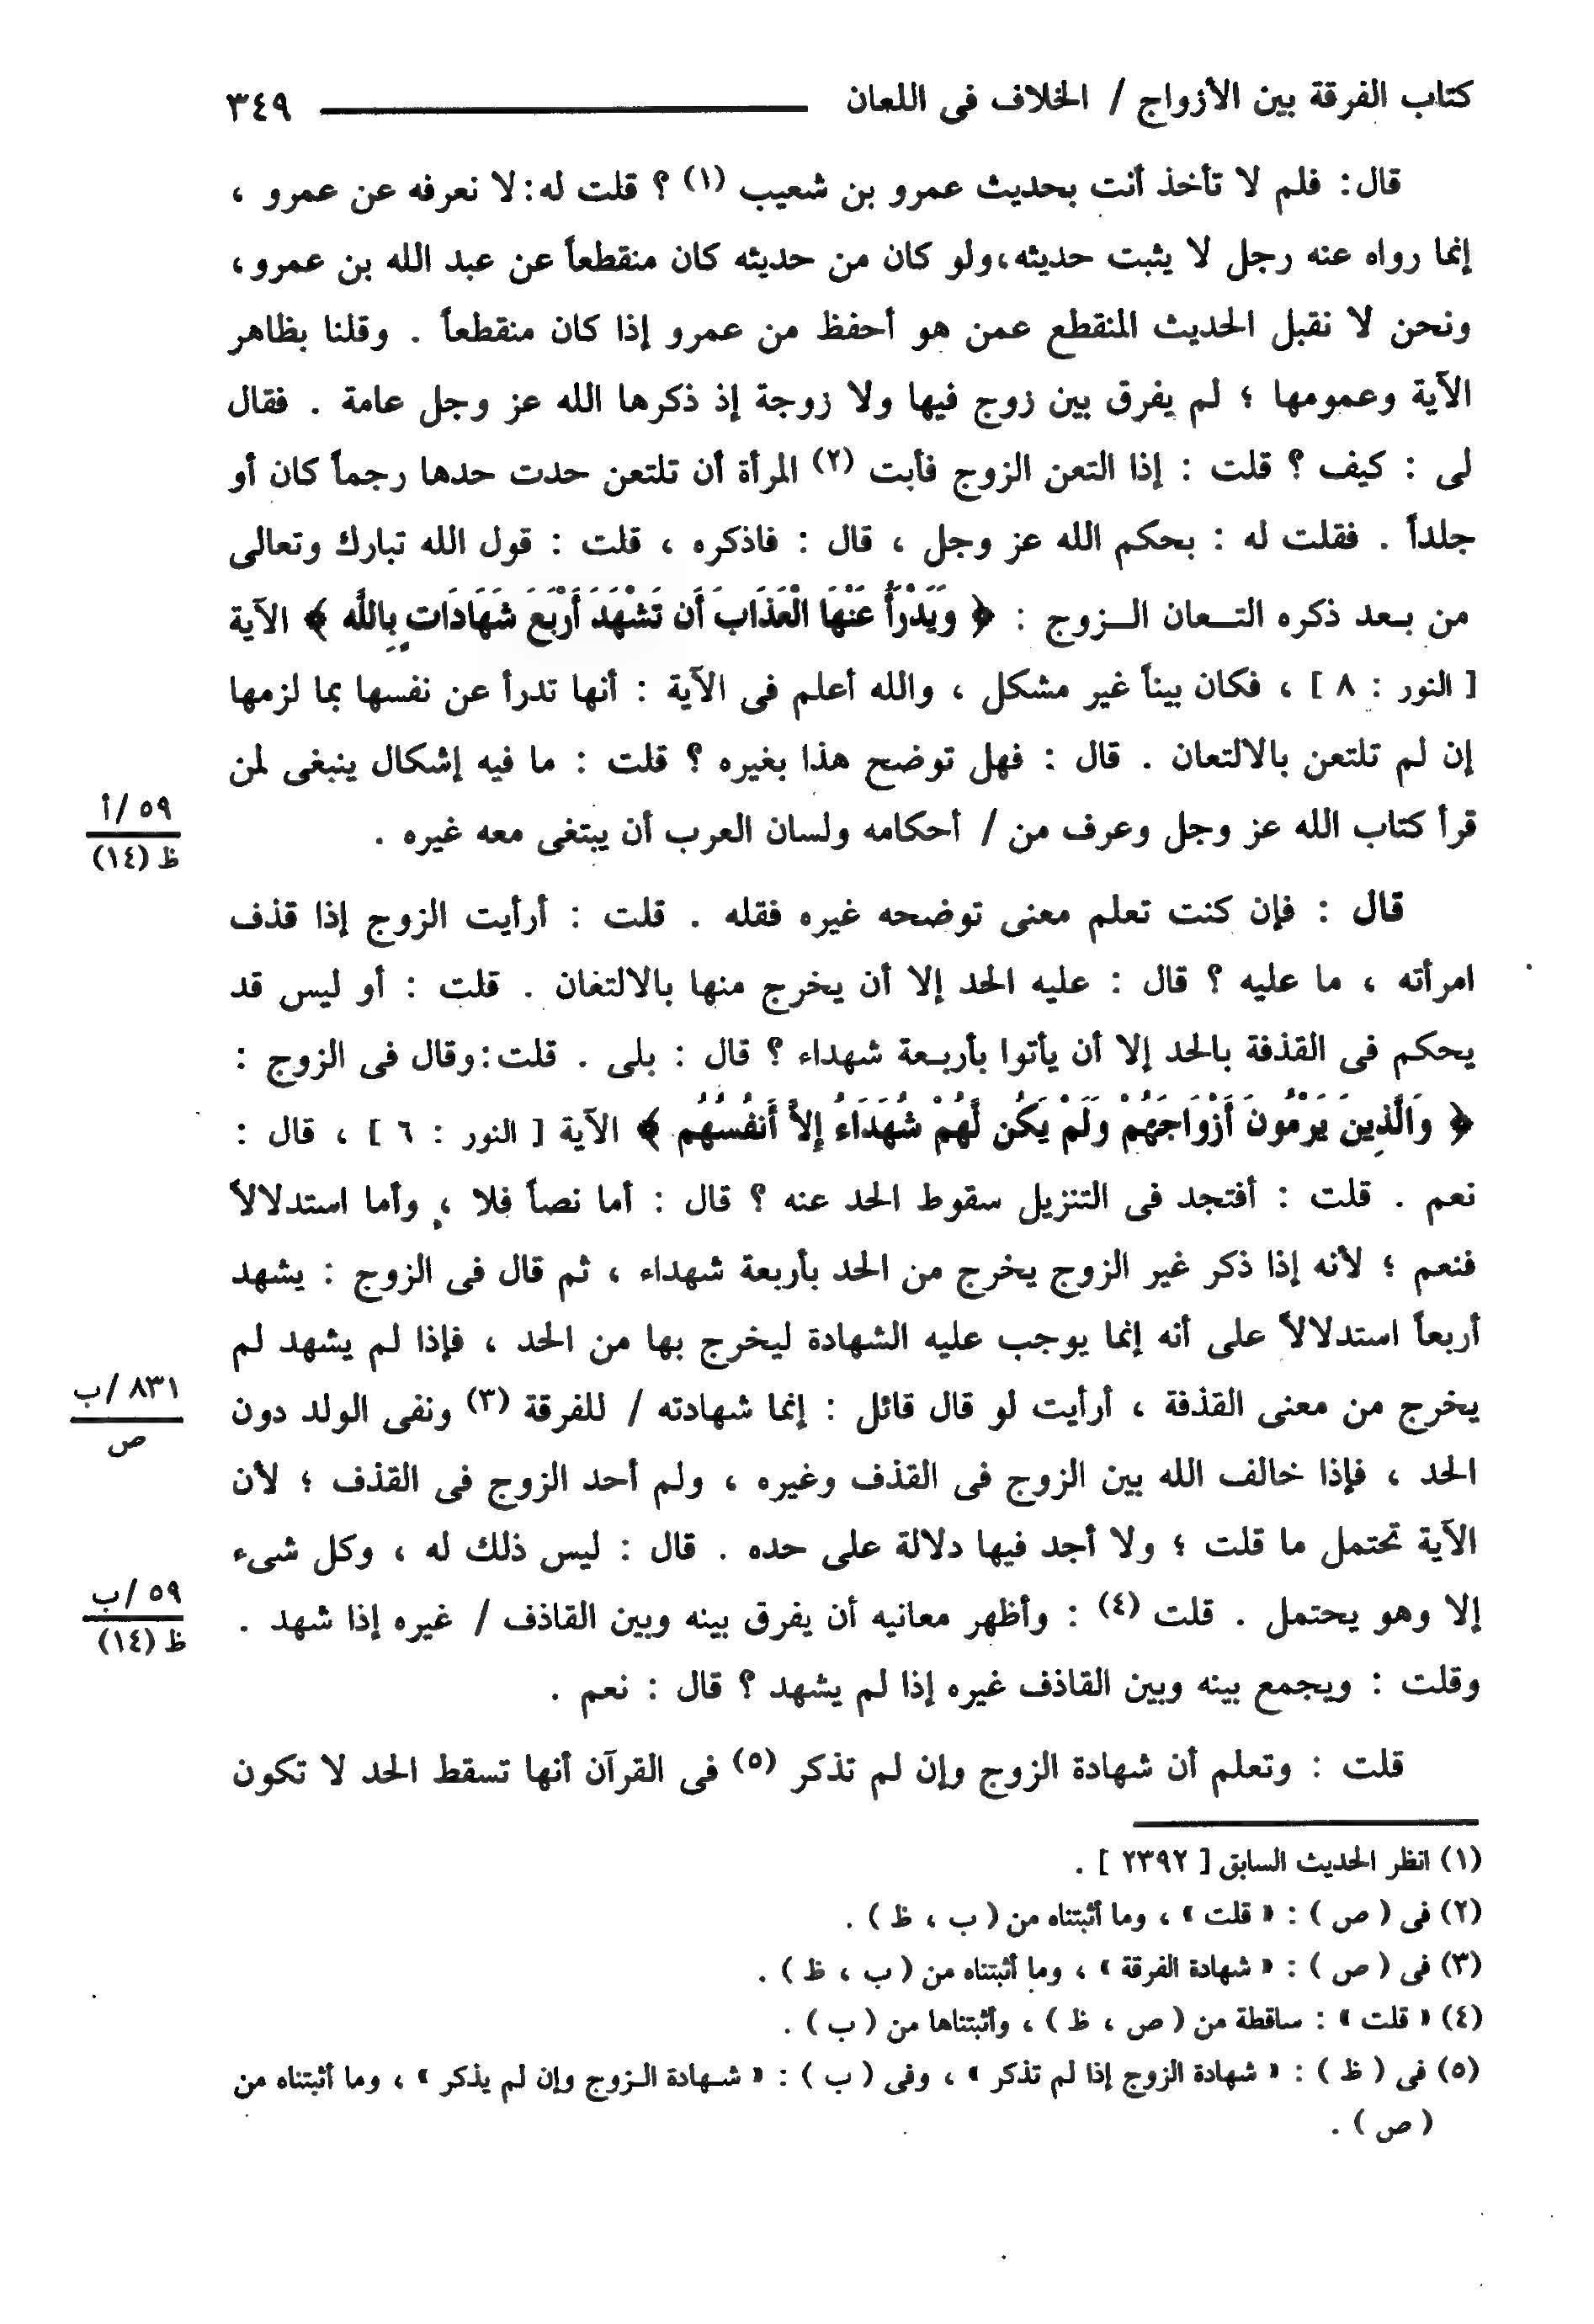 كتاب الفرقة بين الأزواج / الخلاف فى اللعان ٣٤٩
قال: فلم لا تأخذ أنت بحديث عمرو بن شعيب (١) ؟ قلت له: لا نعرفه عن عمرو ،
إنما رواه عنه رجل لا يثبت حديثه، ولو كان من حديثه كان منقطعاً عن عبد الله بن عمرو،
ونحن لا نقبل الحديث المنقطع عمن هو أحفظ من عمرو إذا كان منقطعاً . وقلنا بظاهر
الآية وعمومها ؛ لم يفرق بين زوج فيها ولا زوجة إذ ذكرها الله عز وجل عامة . فقال
لى : كيف ؟ قلت : إذا التعن الزوج فأبت (٢) المرأة أن تلتعن حدت حدها رجماً كان أو
جلداً . فقلت له : بحكم الله عز وجل ، قال : فاذكره ، قلت : قول الله تبارك وتعالى
من بعد ذكره التعان الزوج : ﴿ وَيَدْرَأُ عَنْهَا الْعَذَابَ أَن تَشْهَدَ أَرْبَعَ شَهَادَاتٍ بِاللَّه ﴾ الآية
[ النور : ٨ ] ، فكان بيناً غير مشكل ، والله أعلم فى الآية : أنها تدرأ عن نفسها بما لزمها
إن لم تلتعن بالالتعان . قال : فهل توضح هذا بغيره ؟ قلت : ما فيه إشكال ينبغى لمن
قرأ كتاب الله عز وجل وعرف من / أحكامه ولسان العرب أن يبتغى معه غيره .
٥٩ /أ
ظ (١٤)
قال : فإن كنت تعلم معنى توضحه غيره فقله . قلت : أرأيت الزوج إذا قذف
امرأته ، ما عليه ؟ قال : عليه الحد إلا أن يخرج منها بالالتعان . قلت : أو ليس قد
يحكم فى القذفة بالحد إلا أن يأتوا بأربعة شهداء ؟ قال : بلى . قلت: وقال فى الزوج :
﴿ وَالَّذِينَ يَرْمُونَ أَزْوَاجَهُمْ وَلَمْ يَكُن لَّهُمْ شُهَدَاءُ إِلاَّ أَنفُسُهُم ﴾ الآية [ النور : ٦ ] ، قال :
نعم . قلت : أفتجد فى التنزيل سقوط الحد عنه ؟ قال : أما نصاً فلا ، وأما استدلالاً
فنعم ؛ لأنه إذا ذكر غير الزوج يخرج من الحد بأربعة شهداء ، ثم قال فى الزوج : يشهد
أربعاً استدلالاً على أنه إنما يوجب عليه الشهادة ليخرج بها من الحد ، فإذا لم يشهد لم
يخرج من معنى القذفة ، أرأيت لو قال قائل : إنما شهادته / للفرقة (٣) ونفى الولد دون
٨٣١ /ب
ص
الحد ، فإذا خالف الله بين الزوج فى القذف وغيره ، ولم أحد الزوج فى القذف ؛ لأن
الآية تحتمل ما قلت ؛ ولا أجد فيها دلالة على حده . قال : ليس ذلك له ، وكل شىء
إلا وهو يحتمل . قلت (٤) : وأظهر معانيه أن يفرق بينه وبين القاذف / غيره إذا شهد .
٥٩ /ب
ظ (١٤)
وقلت : ويجمع بينه وبين القاذف غيره إذا لم يشهد ؟ قال : نعم .
قلت : وتعلم أن شهادة الزوج وإن لم تذكر (٥) فى القرآن أنها تسقط الحد لا تكون
(١) انظر الحديث السابق [ ٢٣٩٢ ] .
(٢) فى ( ص ) : « قلت » ، وما أثبتناه من ( ب ، ظ ) .
(٣) فى ( ص ) : « شهادة الفرقة » ، وما أثبتناه من ( ب ، ظ ) .
(٤) « قلت » : ساقطة من ( ص ، ظ ) ، وأثبتناها من ( ب ) .
(٥) فى ( ظ ) : « شهادة الزوج إذا لم تذكر » ، وفى ( ب ) : « شهادة الزوج وإن لم يذكر » ، وما أثبتناه من
( ص ) .